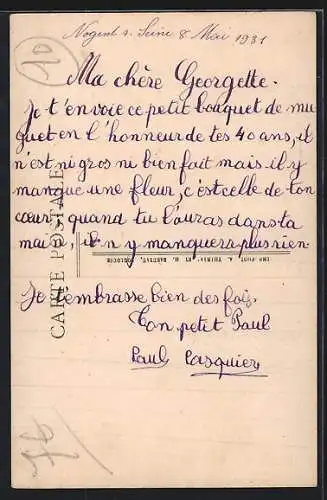 10
Nogent s. Seine 8 Mai 1931
Ma chère Georgette.
Je t'envoie ce petit bouquet de mu
guet en l'honneur de tes 40 ans, il
n'est ni gros ni bien fait mais il y
manque une fleur, c'est celle de ton
cœur, quand tu l'auras dans ta
main, il n'y manquera plus rien
CARTE POSTALE
Je t'embrasse bien des fois,
Ton petit Paul
Paul Casquier